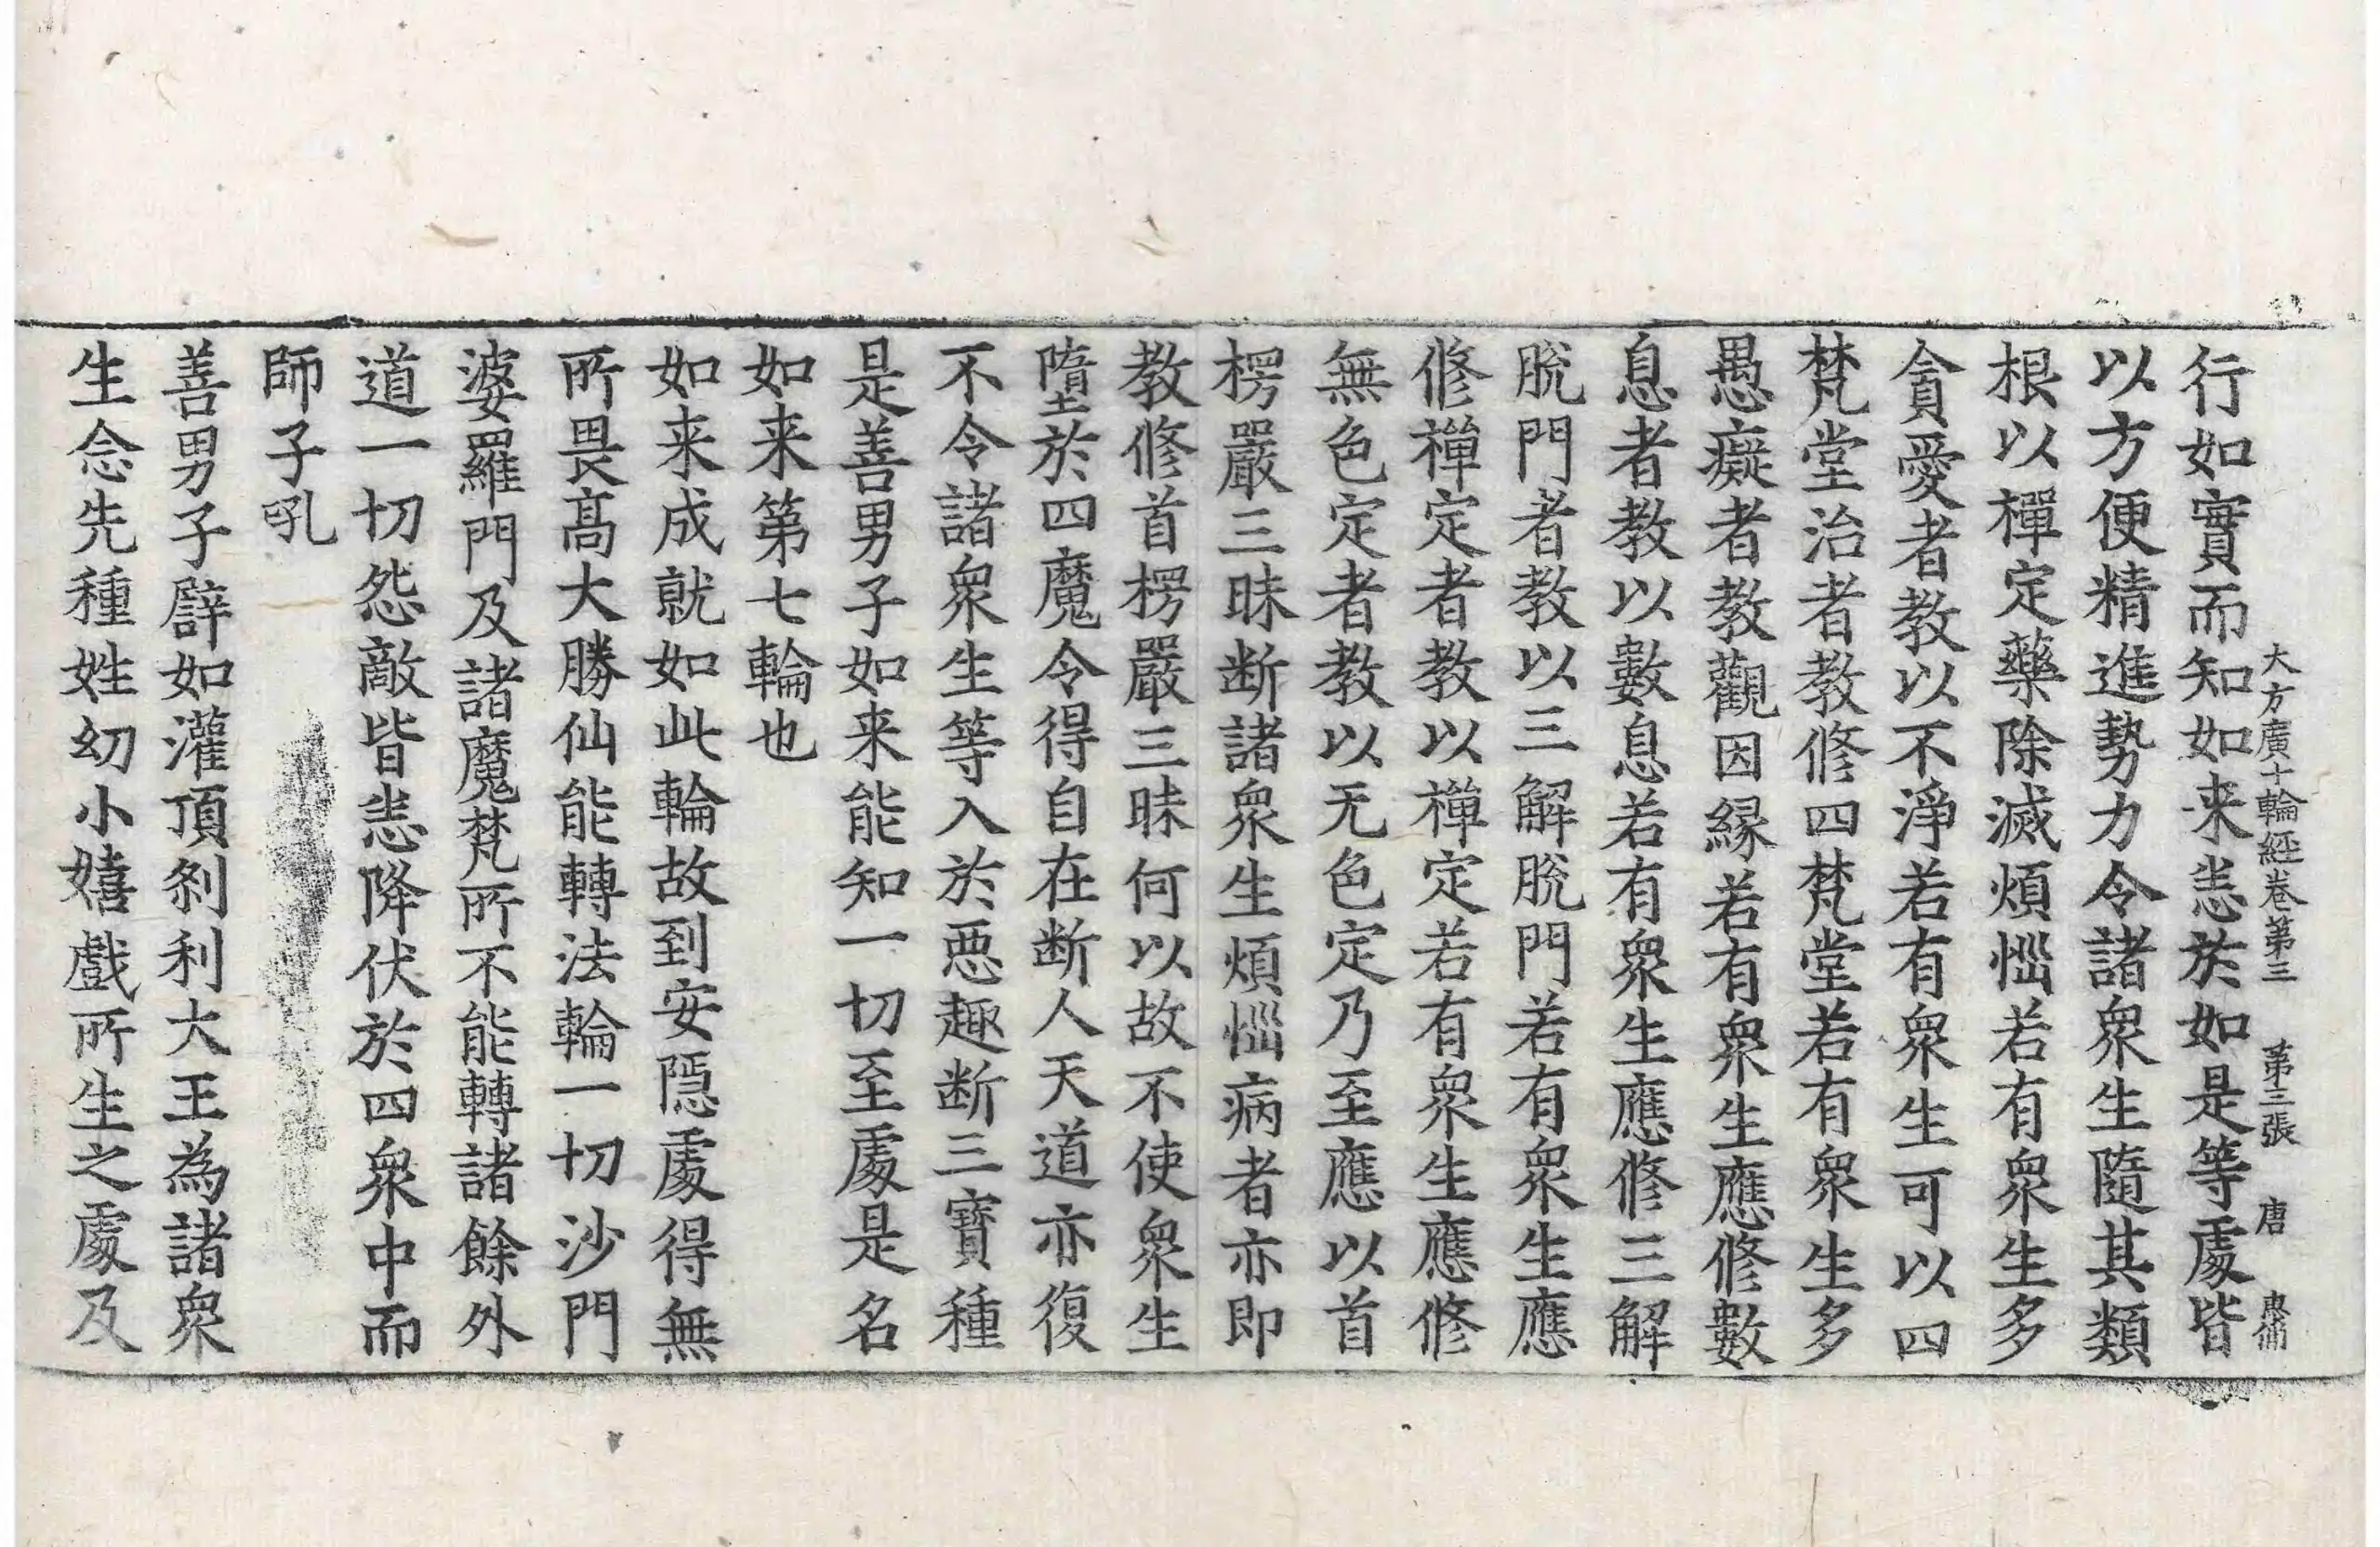 大方廣十輪經卷第三 第三張 唐
行如實而知如来恙於如是等處皆
以方便精進勢力令諸衆生隨其類
根以禪定藥除滅煩惱若有衆生多
貪愛者教以不淨若有衆生可以四
梵堂治者教修四梵堂若有衆生多
愚癡者教觀因縁若有衆生應修數
息者教以數息若有衆生應修三解
脫門者教以三解脫門若有衆生應
修禪定者教以禪定若有衆生應修
無色定者教以无色定乃至應以首
楞嚴三昧断諸衆生煩惱病者亦即
教修首楞嚴三昧何以故不使衆生
墮於四魔令得自在断人天道亦復
不令諸衆生等入於惡趣断三寶種
是善男子如来能知一切至處是名
如来第七輪也
如来成就如此輪故到安隱處得無
所畏髙大勝仙能轉法輪一切沙門
婆羅門及諸魔梵所不能轉諸餘外
道一切怨敵皆恙降伏於四衆中而
師子吼
善男子譬如灌頂剎利大王為諸衆
生念先種姓幼小嬉戲所生之處及